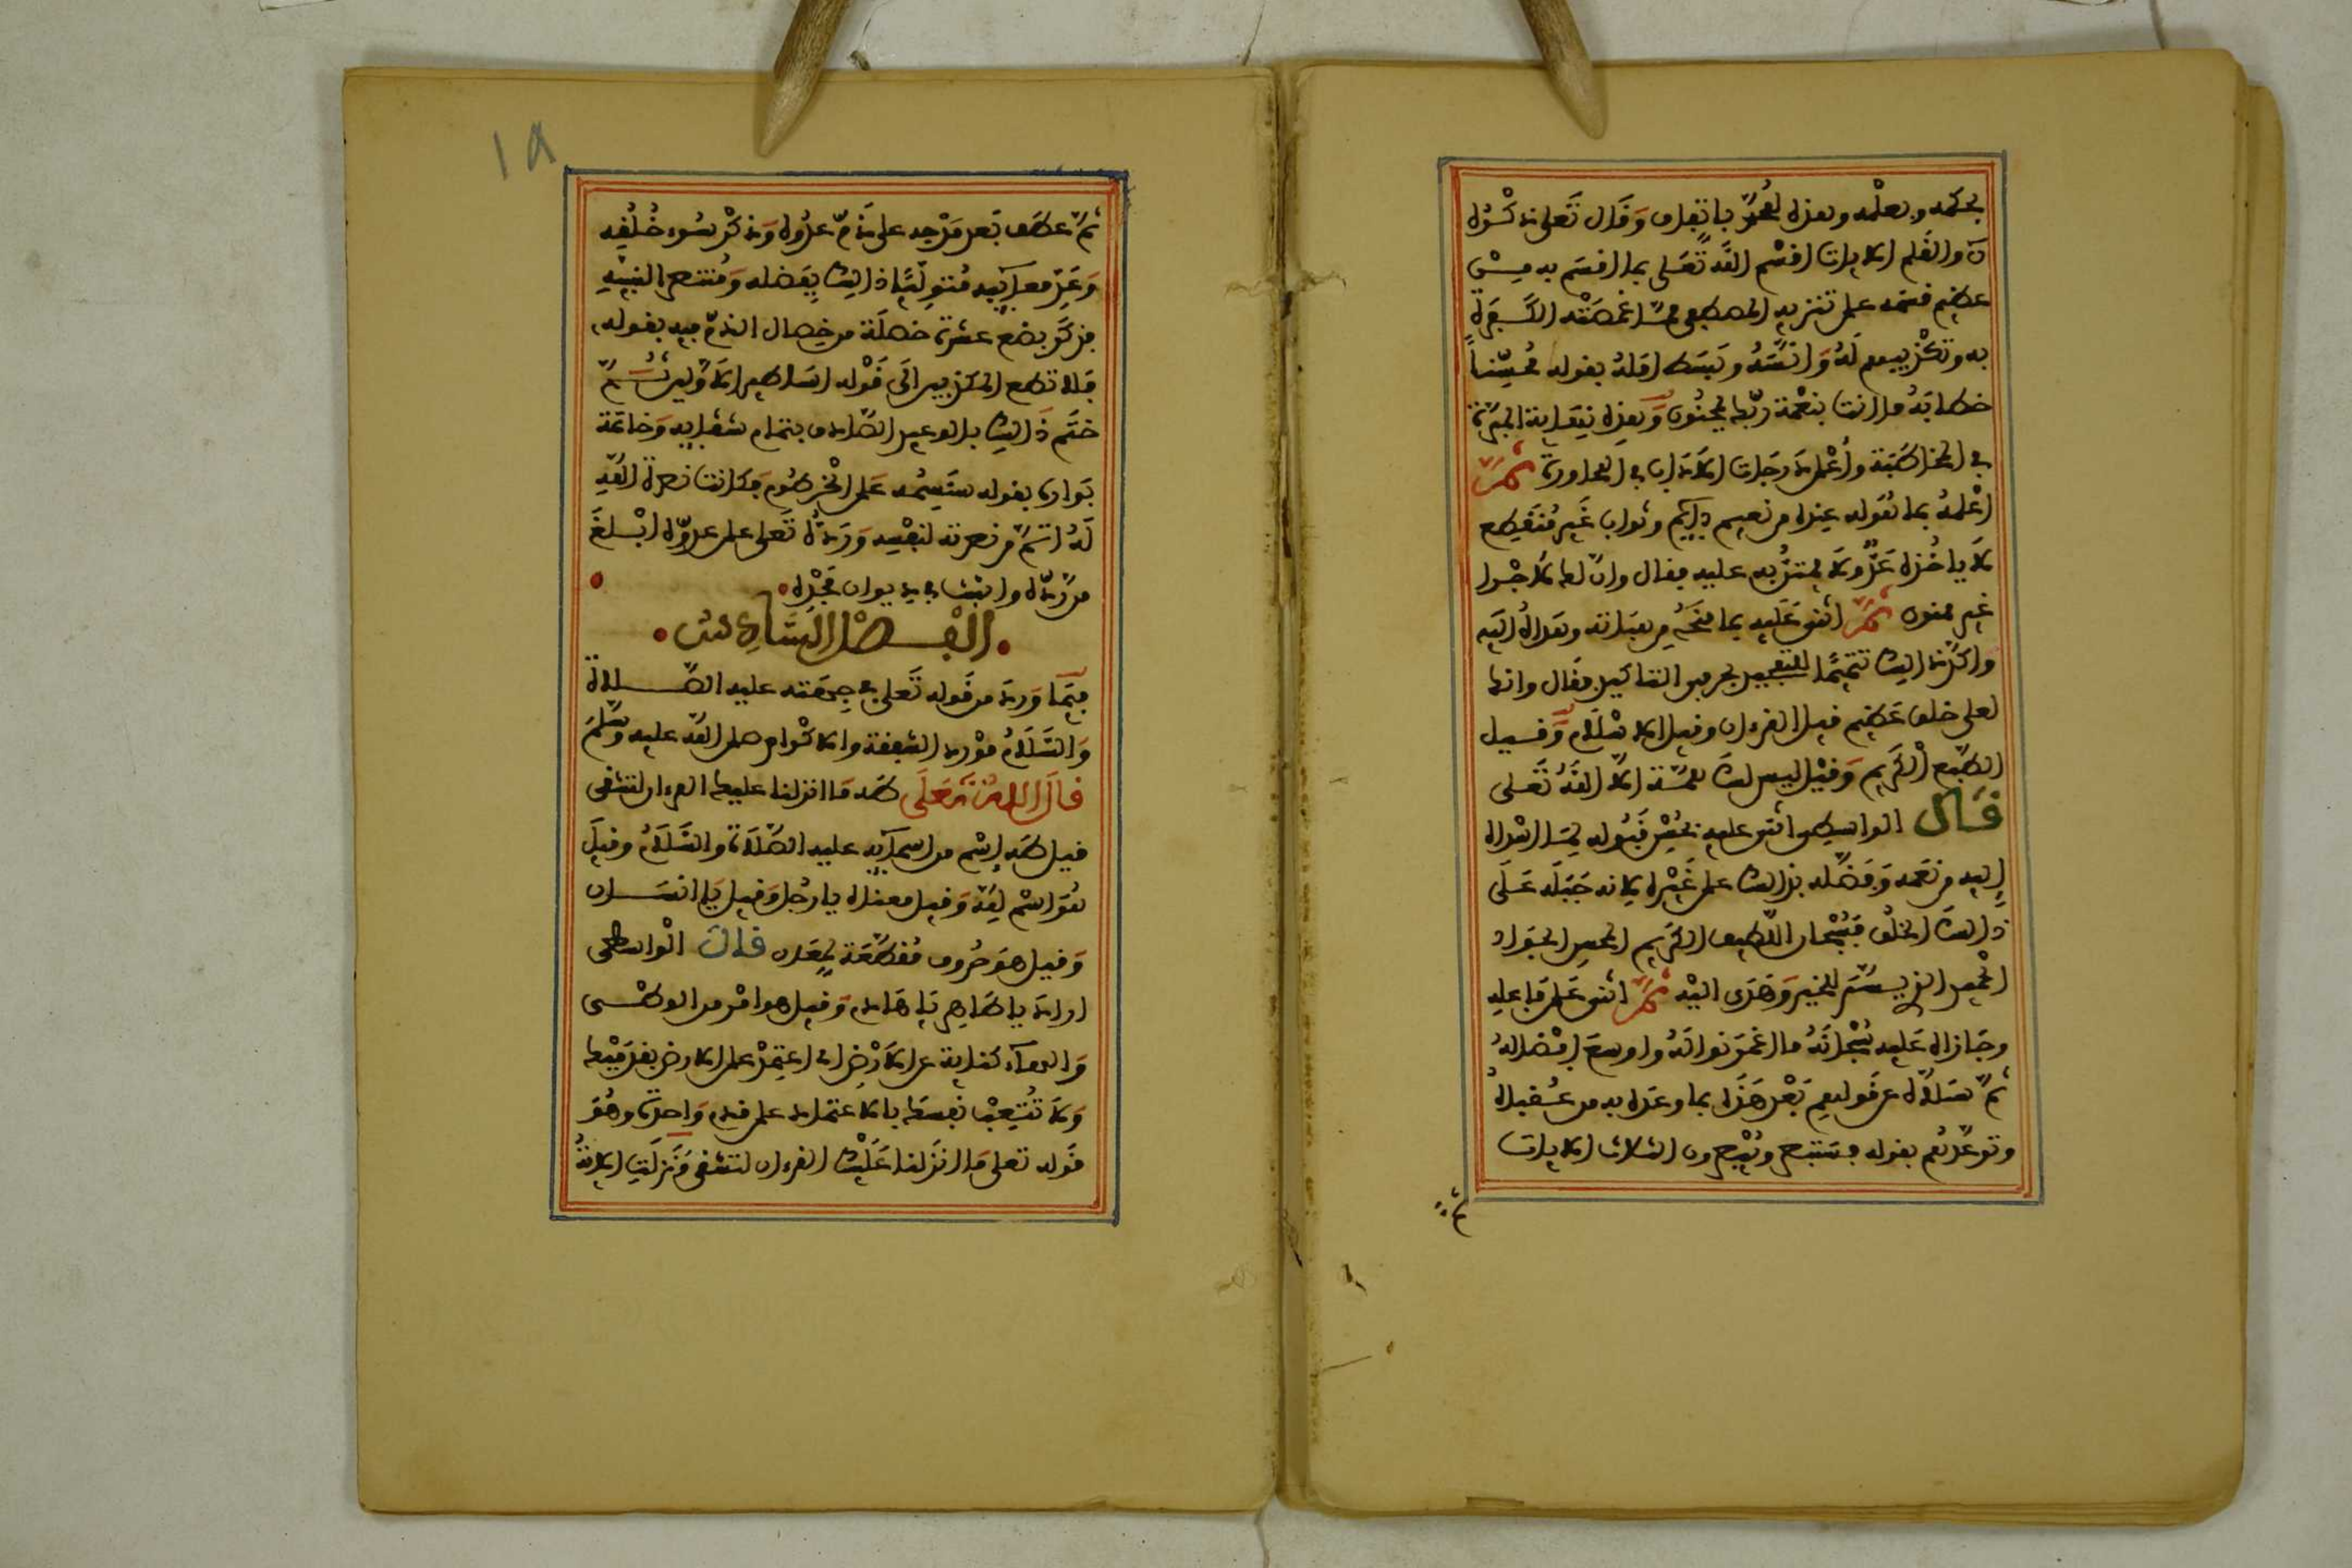 بحكمه وبعلمه وبهذه العمد باتفاق وقال تعلى ذكره
ن والقلم الايات اقسم الله تعلى بما اقسم به من
عضيم قسمه على تنزيه المصطفى مما غمصته الكفرة
به وتكذيبهم له وانسه وبسط امله بقوله محسنا
خطابه ما انت بنعمة ربك بمجنون وهذه نهاية المبرة
في المخاطبة واعلى درجات الاداب في المحاورة ثم
اعلمه بما له عنده من نعيم دايم وثواب غير منقطع
لا ياخذه عد ولا يمتن به عليه فقال وان لك لاجرا
غير ممنون ثم اثنى عليه بما منحه من هباته وهداه اليه
واكد ذالك تتميما للتمجيد بحرفي التاكيد فقال وانك
لعلى خلق عضيم قيل القرءان وقيل الاسلام وقيل
الطبع الكريم وقيل ليس لك همة الا الله تعلى
قال الواسطي اثنى عليه بحسن قبوله لما اسداه
اليه من نعمه وفضله بذالك على غيره لانه جبله على
ذالك الخلق فسبحان اللطيف الكريم المحسن الجواد
الحميد الذي يسر للخير وهدى اليه ثم اثنى على فاعله
وجازاه عليه سبحانه ما اغمر نواله واوسع افضاله
ثم سلاه عن قولهم بعد هذا بما وعده به من عقباه
وتوعدهم بقوله فستبصر ويبصرون الثلاث الايات
ثم
١٨
ثم عطف بعد مدحه على ذم عدوه وذكر سوء خلقه
وعد معايبه متوليا ذالك بفضله ومنتصرا لنبيه
فذكر بضع عشرة خصلة من خصال الذم فيه بقوله
فلا تطع المكذبين الى قوله اساطير الاولين ثم
ختم ذالك بالوعيد الصادق بتمام شقايه وخاتمة
بواره بقوله سنسمه على الخرطوم فكانت نصرة الله
له اتم من نصرته لنفسه ورده تعلى على عدوه ابلغ
من رده واثبت في ديوان مجده
الفصل السادس
فيما ورد من قوله تعلى في جهته عليه الصلاة
والسلام مورد الشفقة والاكرام صلى الله عليه وسلم
قال الله تعلى طه ما انزلنا عليك القرءان لتشقى
قيل طه اسم من اسمايه عليه الصلاة والسلام وقيل
هو اسم لله وقيل معناه يا رجل وقيل يا انسان
وقيل هو حروف مقطعة لمعان قال الواسطي
اراد يا طاهر يا هادي وقيل هو امر من الوطئ
والهاء كناية عن الارض اي اعتمد على الارض بقدميك
ولا تتعب نفسك بالاعتماد على قدم واحدة وهو
قوله تعلى ما انزلنا عليك القرءان لتشقى نزلت الاية